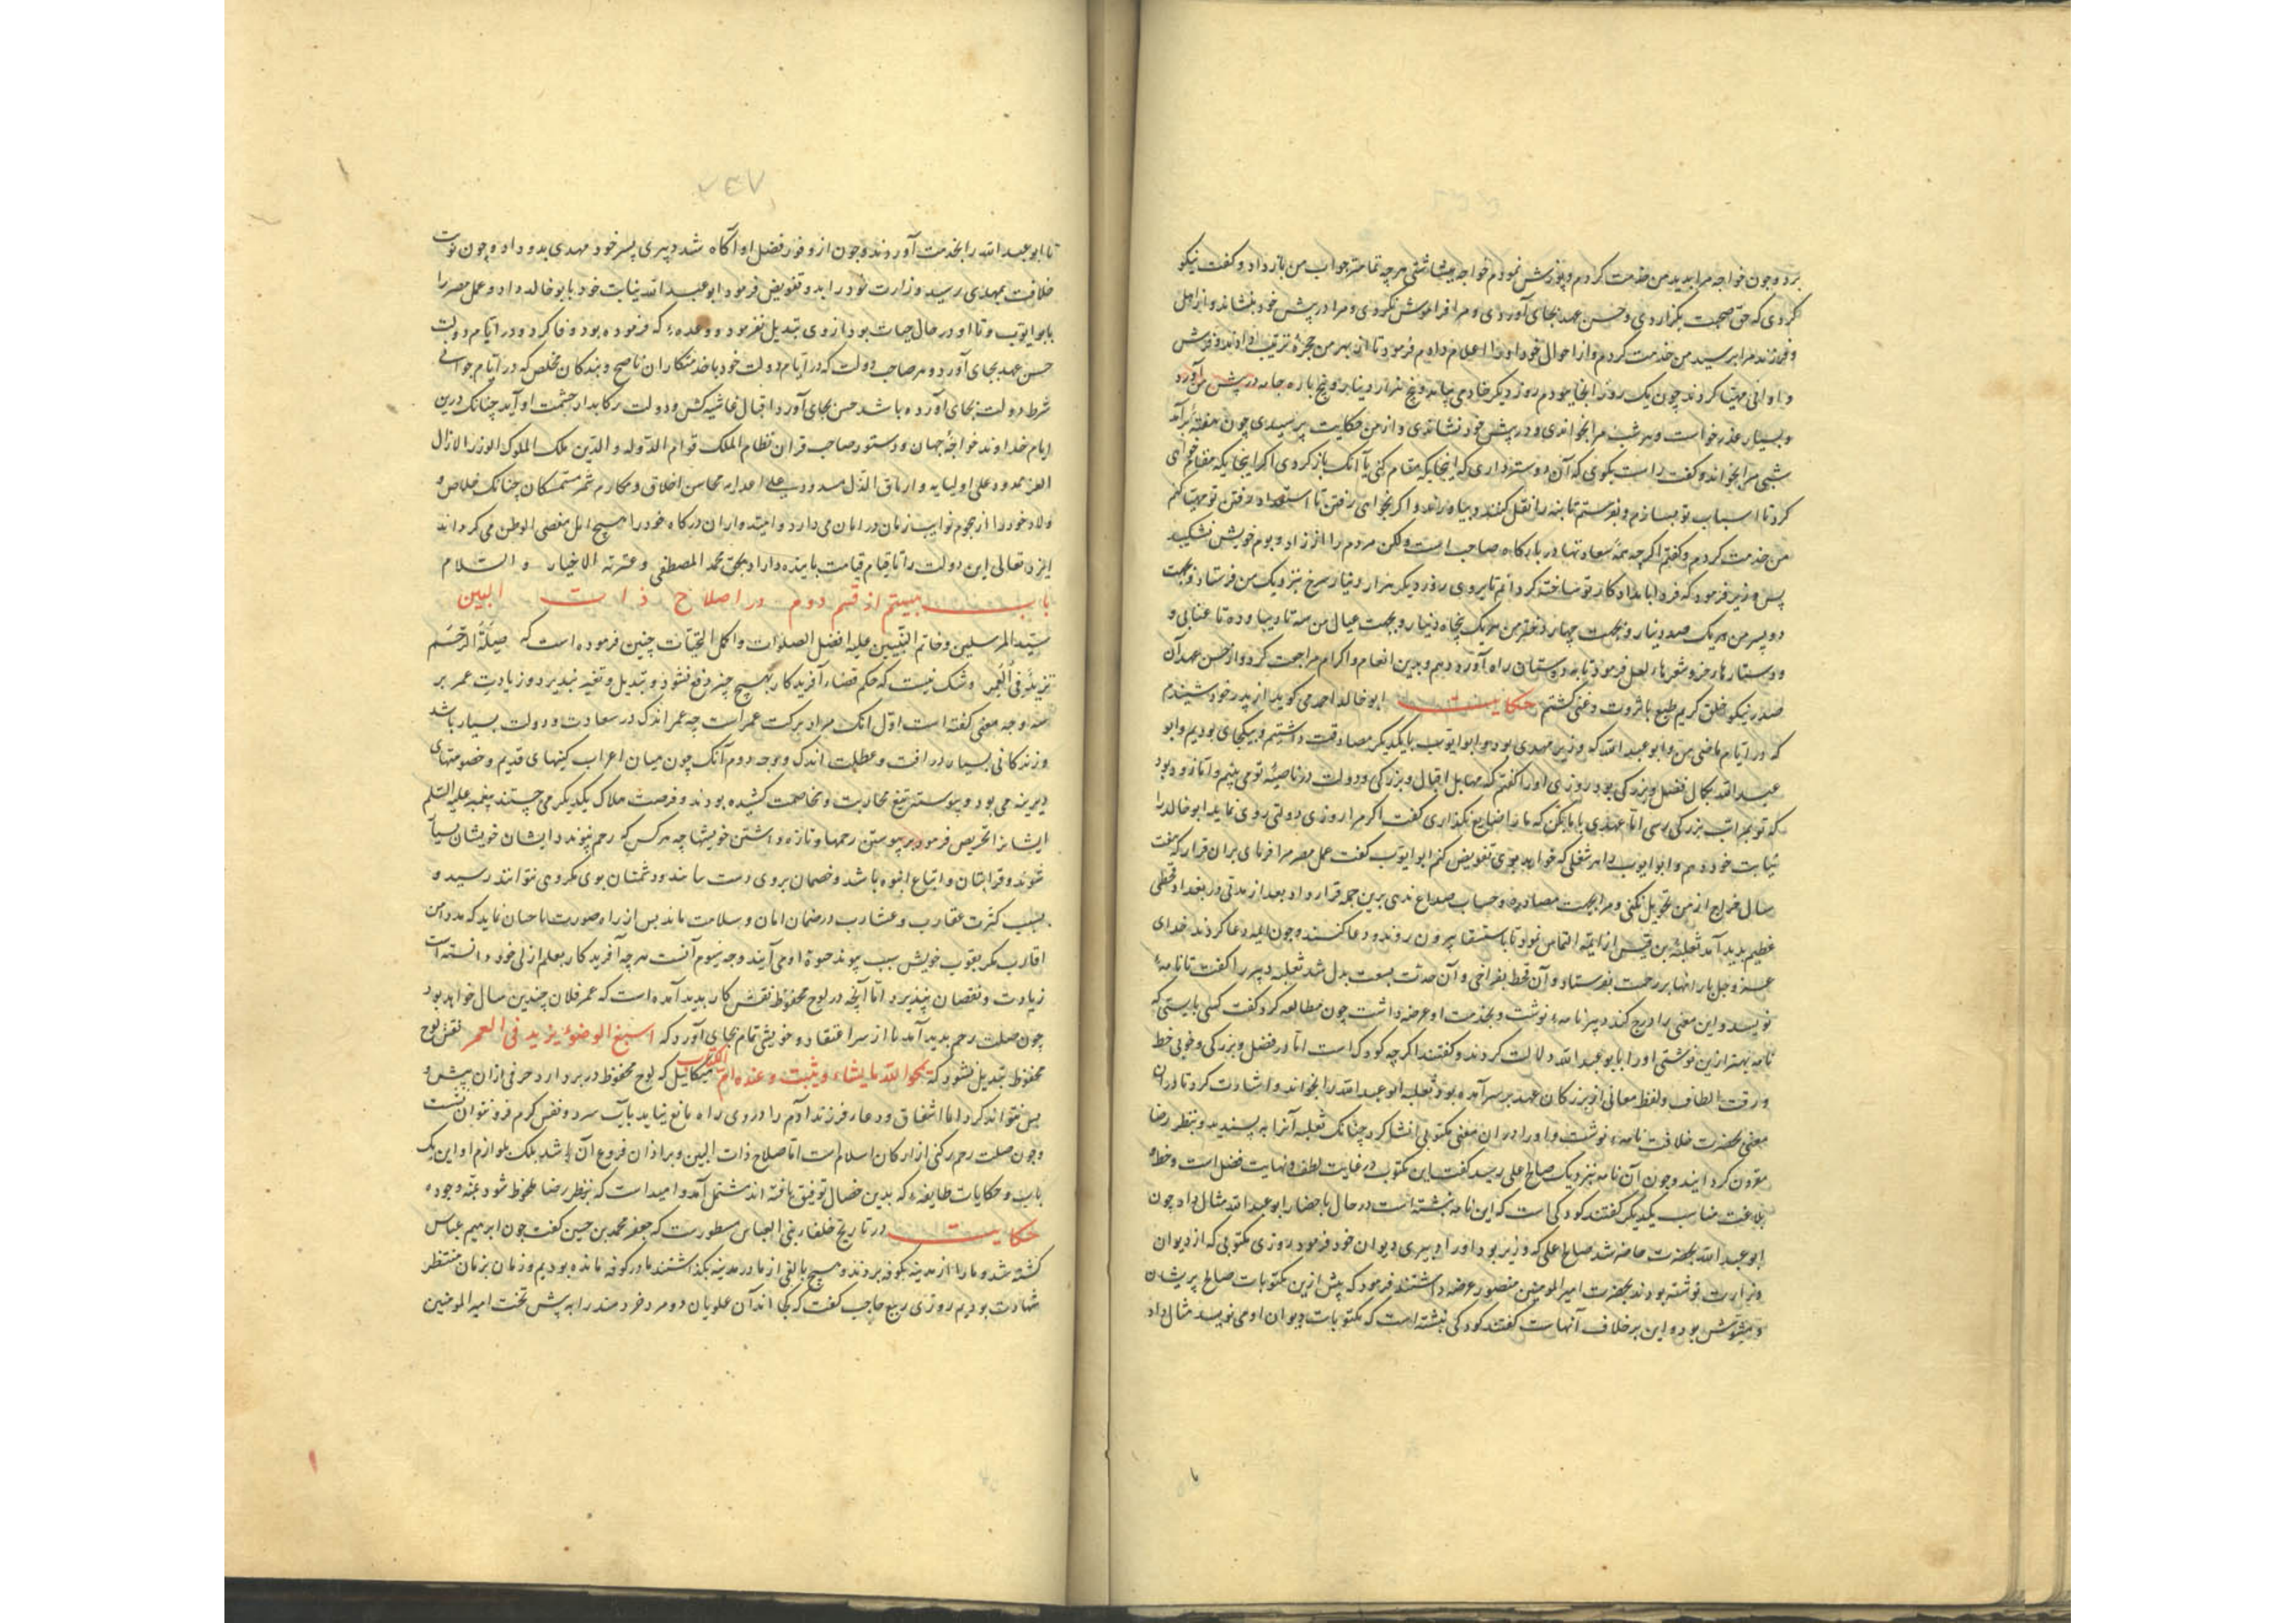 برد و چون خواجه مرا بدید من خدمت کردم و پوزش نمودم خواجه ببشاشتی هرچه تمامتر جواب من باز داد و گفت نیکو
کردی که حق صحبت بگزاردی و حسن عهد بجای آوردی و مرا فراموش نکردی و مرا در پیش خود بنشاند و از اهل
و فرزند مرا برسید من خدمت کردم و از احوال خود او را اعلام دادم فرمود تا از بهر من حجرهٔ ترتیب دادند و فرش
و اوانی مهیا کردند چون یک روز انجا بودم روز دیکر خادمی بیامد و پنج هزار دینار و پنج تازه جامه در پیش من آورد
و بسیار عذر خواست و هر شب مرا بخواندی و در پیش خود نشاندی و از من حکایت پرسیدی چون هفتهٔ برآمد
شبی مرا بخواند و کفت راست بکوی که آن دوستر داری که اینجایکه مقام کنی یا آنک باز کردی اکر اینجایکه مقام خواهی
کرد تا اسباب تو بسازم و بفرستم تا بنه را نقل کنند و بیاورند و اکر بخواهی رفتن تا استعداد رفتن تو مهیا کنم
من خدمت کردم و کفتم اکرچه همهٔ سعادتها در بارکاه صاحب است ولکن مردم را از زاد و بوم خویش نشکیبد
پس وزیر فرمود که فردا بامداد کار تو ساخته کردانم تا بروی روز دیکر هزار دینار سرخ بنزدیک من فرستاد و بجهت
دو پسر من هر یک صد دینار و بجهت چهار دختر من هر یک پنجاه دینار و بجهت عیال من سه تا دیبا و ده تا عتابی و
و دستارها و خز و شعرها و لعل فرمود تا به دوستان راه آورد دهم و بدین انعام و اکرام مراجعت کردم و از حسن عهد آن
صدر نیکو خلق کریم طبع باثروت و غنی کشتم حکایت ابو خالد احمد می کوید از پدر خود شنیدم
که در ایام ماضی من و ابو عبد الله که وزیر مهدی بود و ابو ایوب با یکدیکر مصادقت داشتیم و بیکجای بودیم و ابو
عبد الله بکمال فضل و بزرکی بود روزی او را کفتم که مخایل اقبال و بزرکی و دولت در ناصیهٔ تو می بینم و تا زود بود
که تو بمراتب بزرکی رسی اما عهدی با ما بکن که ما را ضایع نکذاری کفت اکر مرا روزی دولتی روی نماید ابو خالد را
نیابت خود دهم و ابو ایوب را هر شغلی که خواهد بوی تفویض کنم ابو ایوب کفت عمل مصر مرا فرمای بران قرار که هفت
سال خراج از من تحویل نکنی و مرا بجهت مصادره و حساب صداع ندهی برین جمله قرار داد بعد از مدتی در بغداد قحطی
عظیم بدید آمد ثعلبهٔ بن قیس از ایمه التماس نمود تا باستسقا بیرون روند و دعا کنند چون ایمه دعا کردند خدای
عز و جل بارانها بر رحمت بفرستاد و آن قحط بفراخی و آن شدت بسعت بدل شد ثعلبه دبیر را کفت تا نامهٔ
نویسد و این معنی را درج کند دبیر نامهٔ نوشت و بخدمت او عرضه داشت چون مطالعه کرد کفت کسی بایستی که
نامه بهتر ازین نوشتی او را بابو عبد الله دلالت کردند و کفتند اکرچه کودک است اما در فضل و بزرکی و خوبی خط
و رقت الطاف و لفظ معانی از بزرکان عهد بر سر آمده بود ثعلبه ابو عبد الله را بخواند و اشارت کرد تا در آن
معنی بحضرت خلافت نامهٔ نوشت و او را در ان معنی مکتوبی انشا کرد چنانک ثعلبه آنرا بپسندید و بنظر رضا
مقرون کردانیند و چون آن نامه بنزدیک صالح علی رسید کفت این مکتوب در غایت لطف و نهایت فضل است و خط و
بلاغت مناسب یکدیکر کفتند کودکی است که این نامه نبشته است در حال باحضار ابو عبد الله مثال داد چون
ابو عبد الله بحضرت حاضر شد صالح علی که وزیر بود او را دبیری دیوان خود فرمود روزی مکتوبی که از دیوان
وزارت نوشته بودند بحضرت امیر المومنین منصور عرضه داشتند فرمود که پیش ازین مکتوبات صالح پریشان
و مشوش بود و این برخلاف آنهاست کفتند کودکی نبشته است که مکتوبات دیوان او می نویسد مثال داد
۲۴۷
تا ابو عبد الله را بخدمت آوردند و چون از وفور فضل او آکاه شد دبیری پسر خود مهدی بدو داد و چون نوبت
خلافت بمهدی رسید وزارت خود را بدو تفویض فرمود ابو عبد الله نیابت خود بابو خالد داد و عمل مصر را
بابو ایوب و تا او در حال حیات بود از وی تبدیل نفرمود و وعدهٔ که فرموده بود وفا کرد و در ایام دولت
حسن عهد بجای آورد و هر صاحب دولت که در ایام دولت خود با خدمتکاران ناصح و بندکان مخلص که در ایام جوانی
شرط دولت بجای آورده باشد حسن بجای آورد اقبال غاشیه کش و دولت رکابدار حشمت او آید چنانک درین
ایام خداوند خواجهٔ جهان و دستور صاحب قران نظام الملک قوام الدوله و الدین ملک الملوک الوزرا لازال
العز ممدود علی اولیایه و ارماق الذل مسدود علی اعدایه محاسن اخلاق و مکارم ستمکان چنانک خلاص و
ولاد خود را از هجوم نوایب زمان در امان می دارد و امیدواران درکاه خود را بهیچ اهل مفضی الوطن می کرداند
ایزد تعالی این دولت را تا قیام قیامت پاینده داراد بحق محمد المصطفی و عترته الاخیار و السلام
باب بیستم از قسم دوم در اصلاح ذات البین
سید المرسلین و خاتم النبیین علیه افضل الصلوات و اکمل التحیات چنین فرموده است که صلة الرحم
تزید فی العمر و شک نیست که حکم قضاء آفریدکار بهیچ چیز دفع نشود و تبدیل و تغیر نپذیرد و زیادت عمر بر
سه وجه معنی کفته است اول انک مراد برکت عمر است چه عمر اندک در سعادت و دولت بسیار باشد
و زندکانی بسیار در افت و عطلت اندک و وجه دوم آنک چون میان اعراب کینهای قدیم و خصومتهای
دیرینه می بود و پیوسته تیغ محاربت و مخاصمت کشیده بودند و فرصت هلاک یکدیکر می جستند پیغمبر علیه السلم
ایشانرا تحریص فرمود بر پیوستن رحمها و تازه داشتن خویشها چه هرکس که رحم پیوندد ایشان خویشان بسیار
شوند و قرابتان و اتباع انبوه باشد و خصمان بروی دست نیابند و دشمنان بوی مکروهی نتوانند رسید و
بسبب کثرت عقارب و عشارب در ضمان امان و سلامت ماند پس از راه صورت باحسان نماید که مدد امن
اقارب مکر بقوت خویش سبب پیوند حیوة او می آیند و وجه سوم آنست هرچه آفریدکار بعلم ازلی خود دانسته است
زیادت و نقصان نپذیرد اما آنچه در لوح محفوظ نقش کار بدید آمده است که عمر فلان چندین سال خواهد بود
چون صلت رحم بدید آمد یا از سر اعتقاد وضو بتمام بجای آورد که اسبغ الوضوء یزید فی العمر نقش لوح
محفوظ تبدیل نشود که یمحوا الله ما یشاء و یثبت و عنده ام الکتاب میکائیل که لوح محفوظ در بر دارد حرفی ازان پیش و
پس نتواند کرد اما اشفاق و دعاء فرزند آدم را در وی راه مانع نیاید بآب سرد و نفس کرم فرو نتوان نشست
و چون صلت رحم رکنی از ارکان اسلام است اما صلاح ذات البین و برادران فروع آن باشد بلک بلوازم او این یک
باب و حکایات طایفهٔ که بدین خصال توفیق یافته اند مشتمل آمد و امید است که بنظر رضا ملحوظ شود بمنه وجوده
حکایت در تاریخ خلفاء بنی العباس مسطورست که جعفر محمد بن حسین کفت چون ابرهیم عباس
کشته شد و ما را از مدینه بکوفه بردند و هیچ بالغی از ما در مدینه بکذاشتند ما در کوفه مانده بودیم و زمان بزمان منتظر
شهادت بودیم روزی ربیع حاجب کفت که کجا اند آن علویان دو مرد خردمند را به پیش تخت امیر المومنین